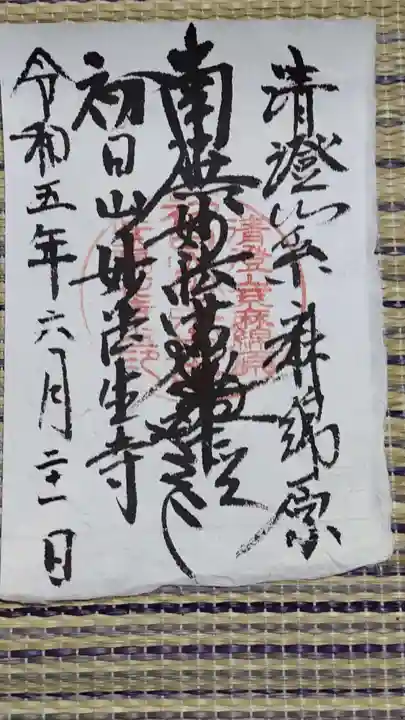 清澄山奥 麻綿原
南無妙法蓮華経
初日山妙法生寺
令和五年六月二十一日